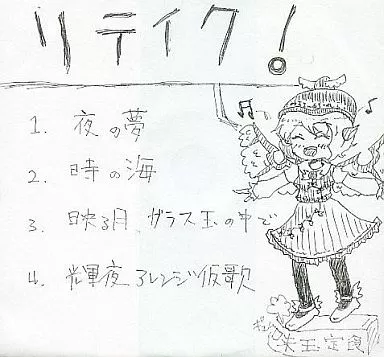 リテイク!
1. 夜の夢
2. 時の海
3. 映る月 ガラス玉の中で
4. 輝夜アレンジ仮歌